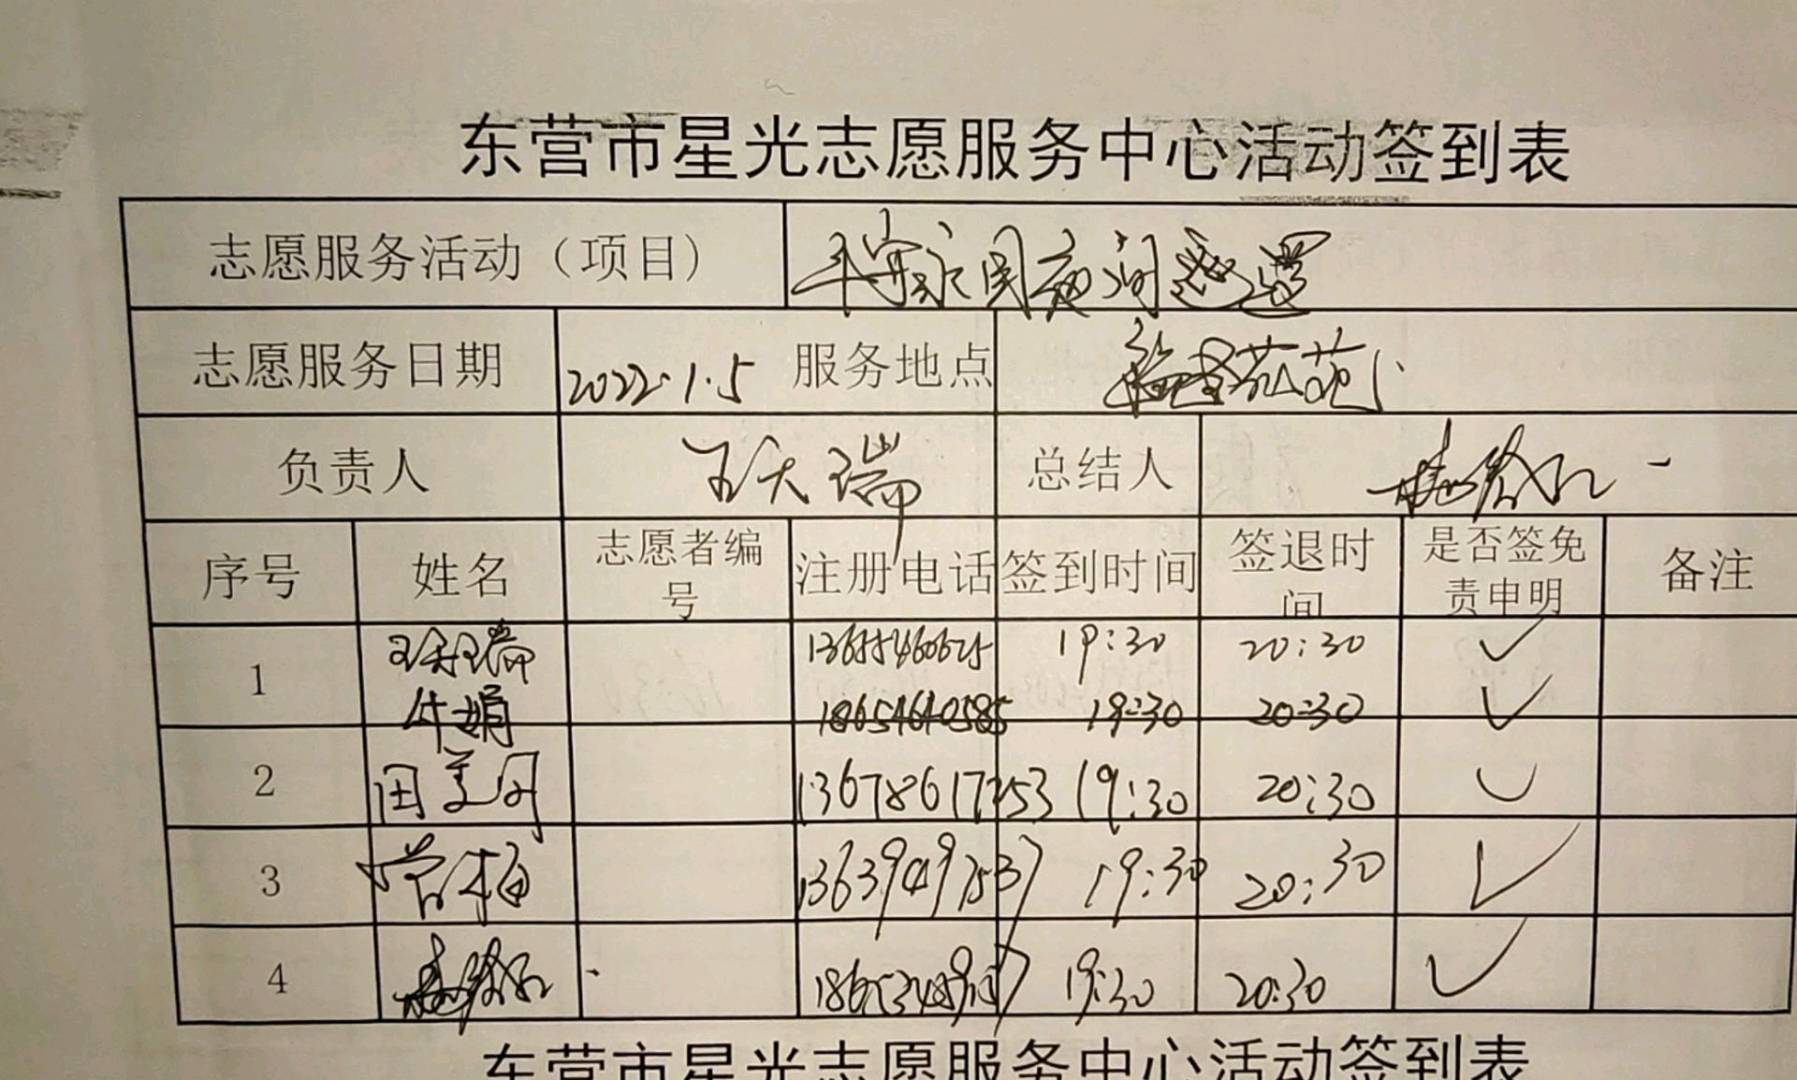 东营市星光志愿服务中心活动签到表
志愿服务活动（项目） 夜间巡逻
志愿服务日期 2022.1.5 服务地点
负责人 王天瑞 总结人
序号 姓名 志愿者编号 注册电话 签到时间 签退时间 是否签免责申明 备注
1 13655460625 19:30 20:30 ✓
牛娟 18654640585 19:30 20:30 ✓
2 田美丹 13678617253 19:30 20:30 ✓
3 曾梅 13639497537 19:30 20:30 ✓
4 19:30 20:30 ✓
东营市星光志愿服务中心活动签到表